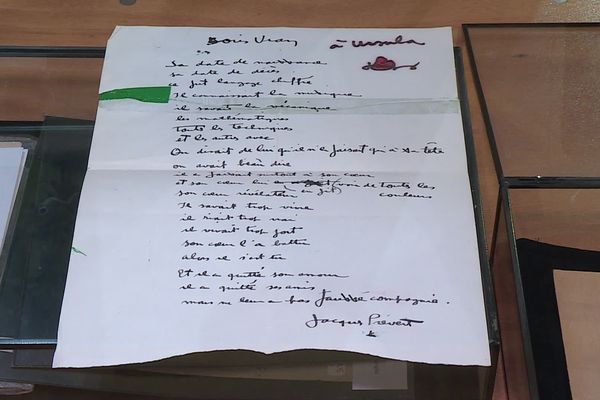 Boris Vian
à Ursula
Sa date de naissance
sa date de décès
ce fut langage chiffré
Il connaissait la musique
il savait la mécanique
les mathématiques
toutes les techniques
et les autres avec
On disait de lui qu'il n'en faisait qu'à sa tête
on avait beau dire
il en faisait surtout à son cœur
et son cœur lui en fit voir de toutes les
couleurs
son cœur révélateur
Il savait trop vivre
il riait trop vrai
il vivait trop fort
son cœur l'a battu
alors il s'est tu
Et il a quitté son amour
il a quitté ses amis
mais ne leur a pas faussé compagnie.
Jacques Prévert